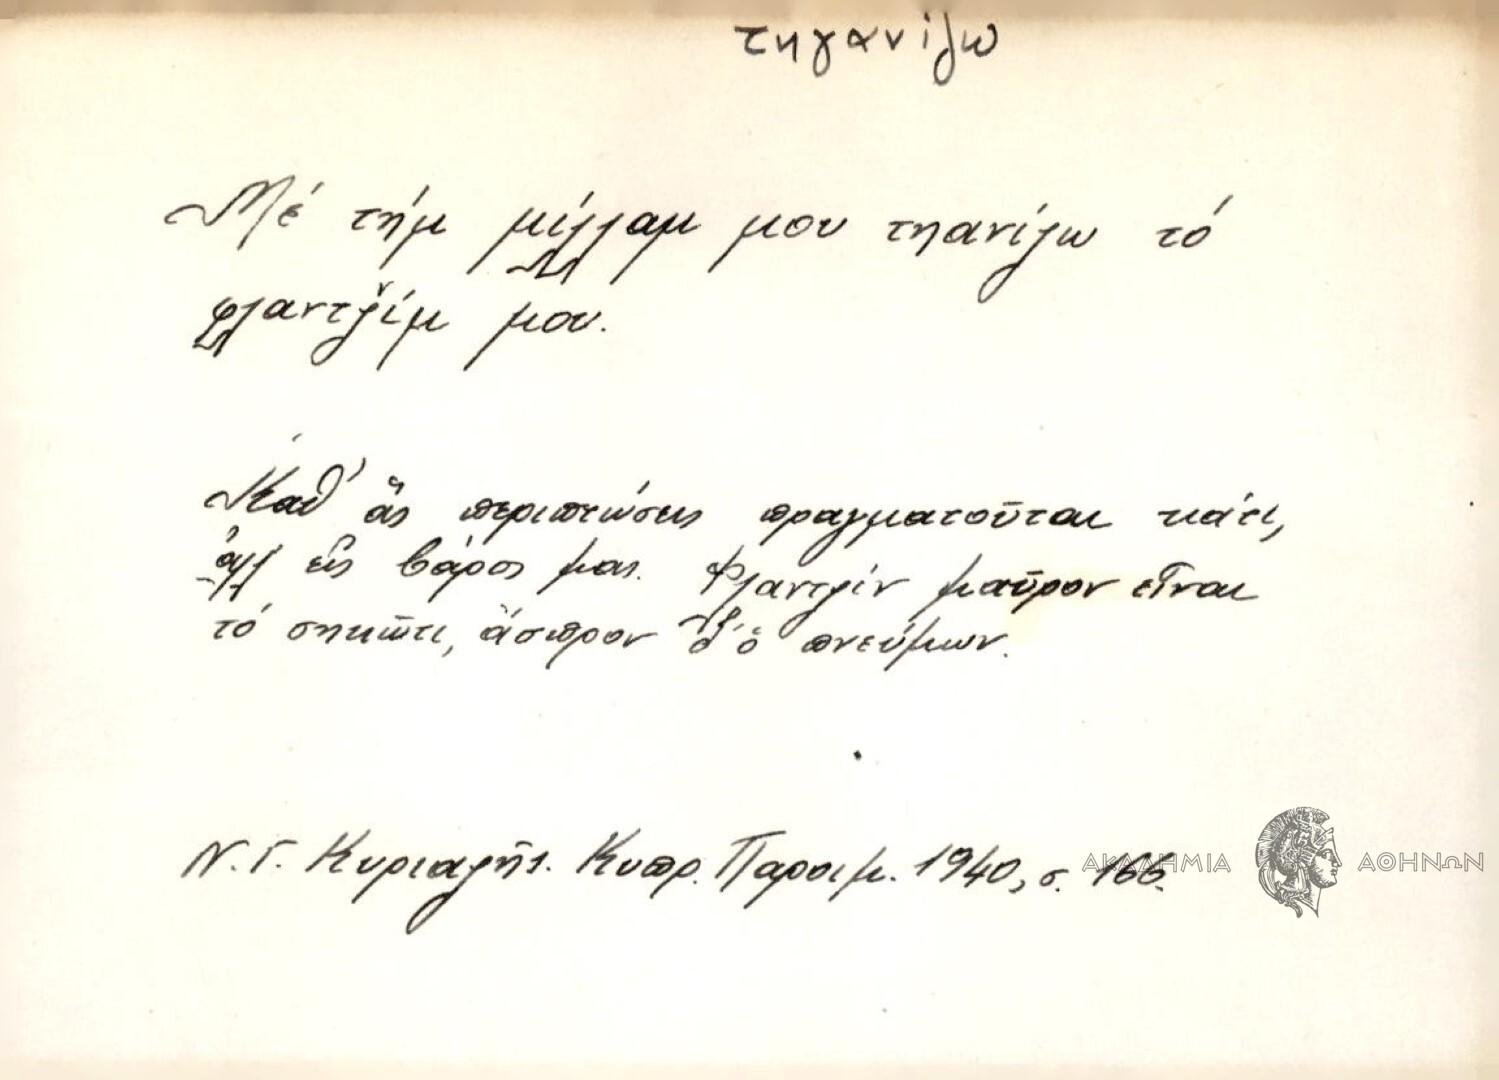 τηγανίζω
Μέ τήμ μίλλαμ μου τηανίζω τό
φλαντζ̌ίμ μου.
Καθ' ἅς περιπτώσεις πραγματοῦται κάτι,
ἀλλ' εἰς βάρος μας. Φλαντζίν μαῦρον εἶναι
τό σηκῶτι, ἄσπρον δ' ὁ πνεύμων.
Ν. Γ. Κυριαζῆς. Κυπρ. Παροιμ. 1940, σ. 166.
ΑΚΑΔΗΜΙΑ ΑΘΗΝΩΝ